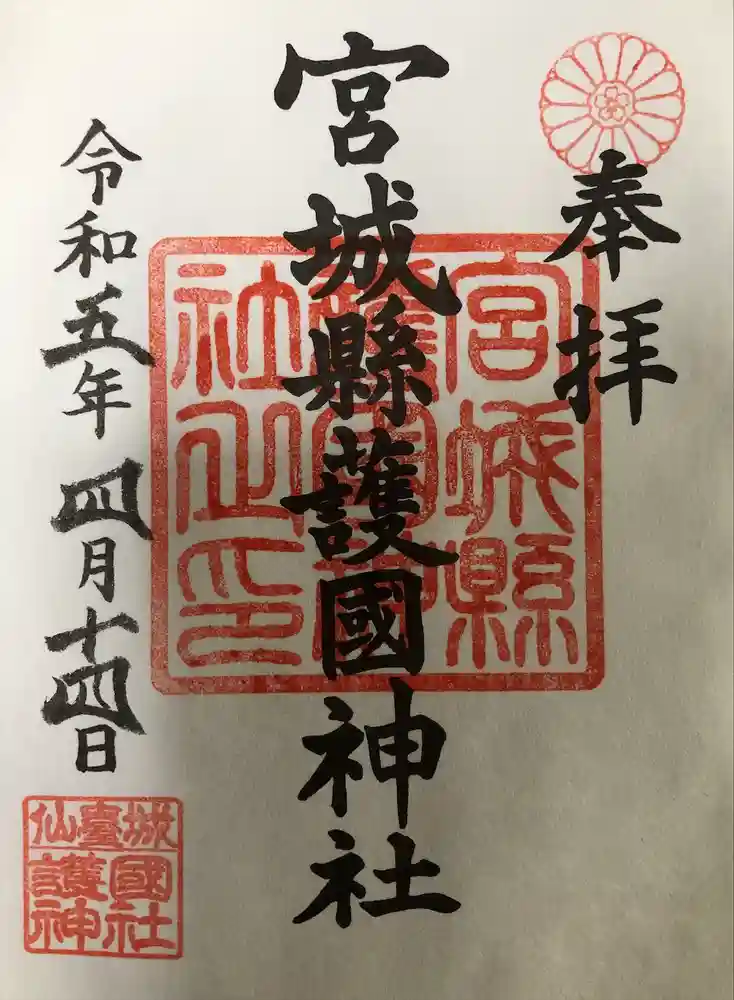 奉拝
宮城縣護國神社
宮城縣
護國神
社之印
令和五年四月十四日
仙臺城
護國
神社